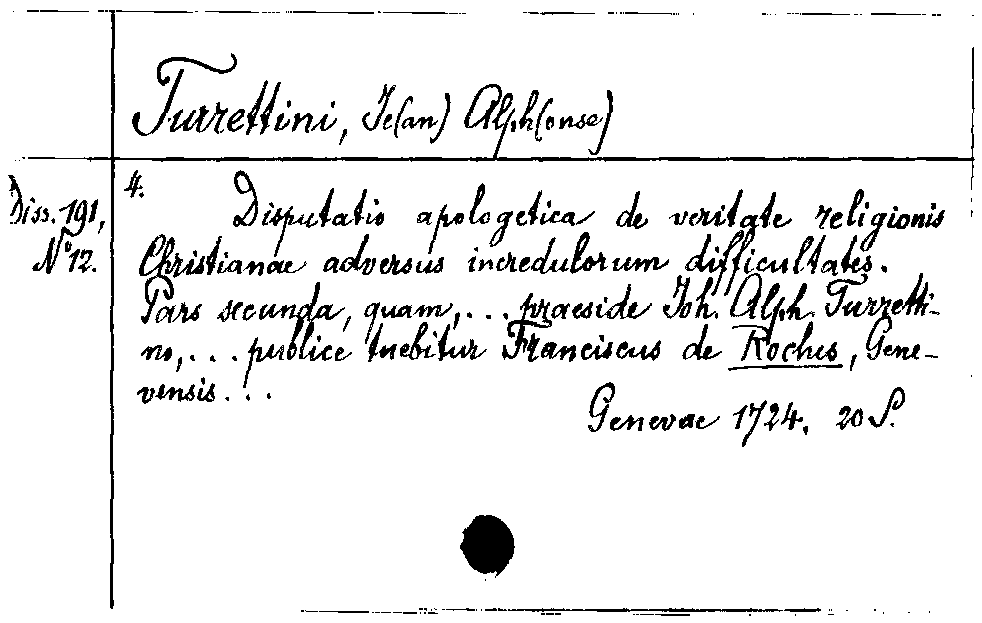 Turrettini, Je(an) Alph(onse)
Diss. 191,
No 12.
4.
Disputatio apologetica de veritate religionis
Christianae adversus incredulorum difficultates.
Pars secunda, quam, ... praeside Joh. Alph. Turretti-
no, ... publice tuebitur Franciscus de Roches, Gene-
vensis ...
Genevae 1724. 20 S.